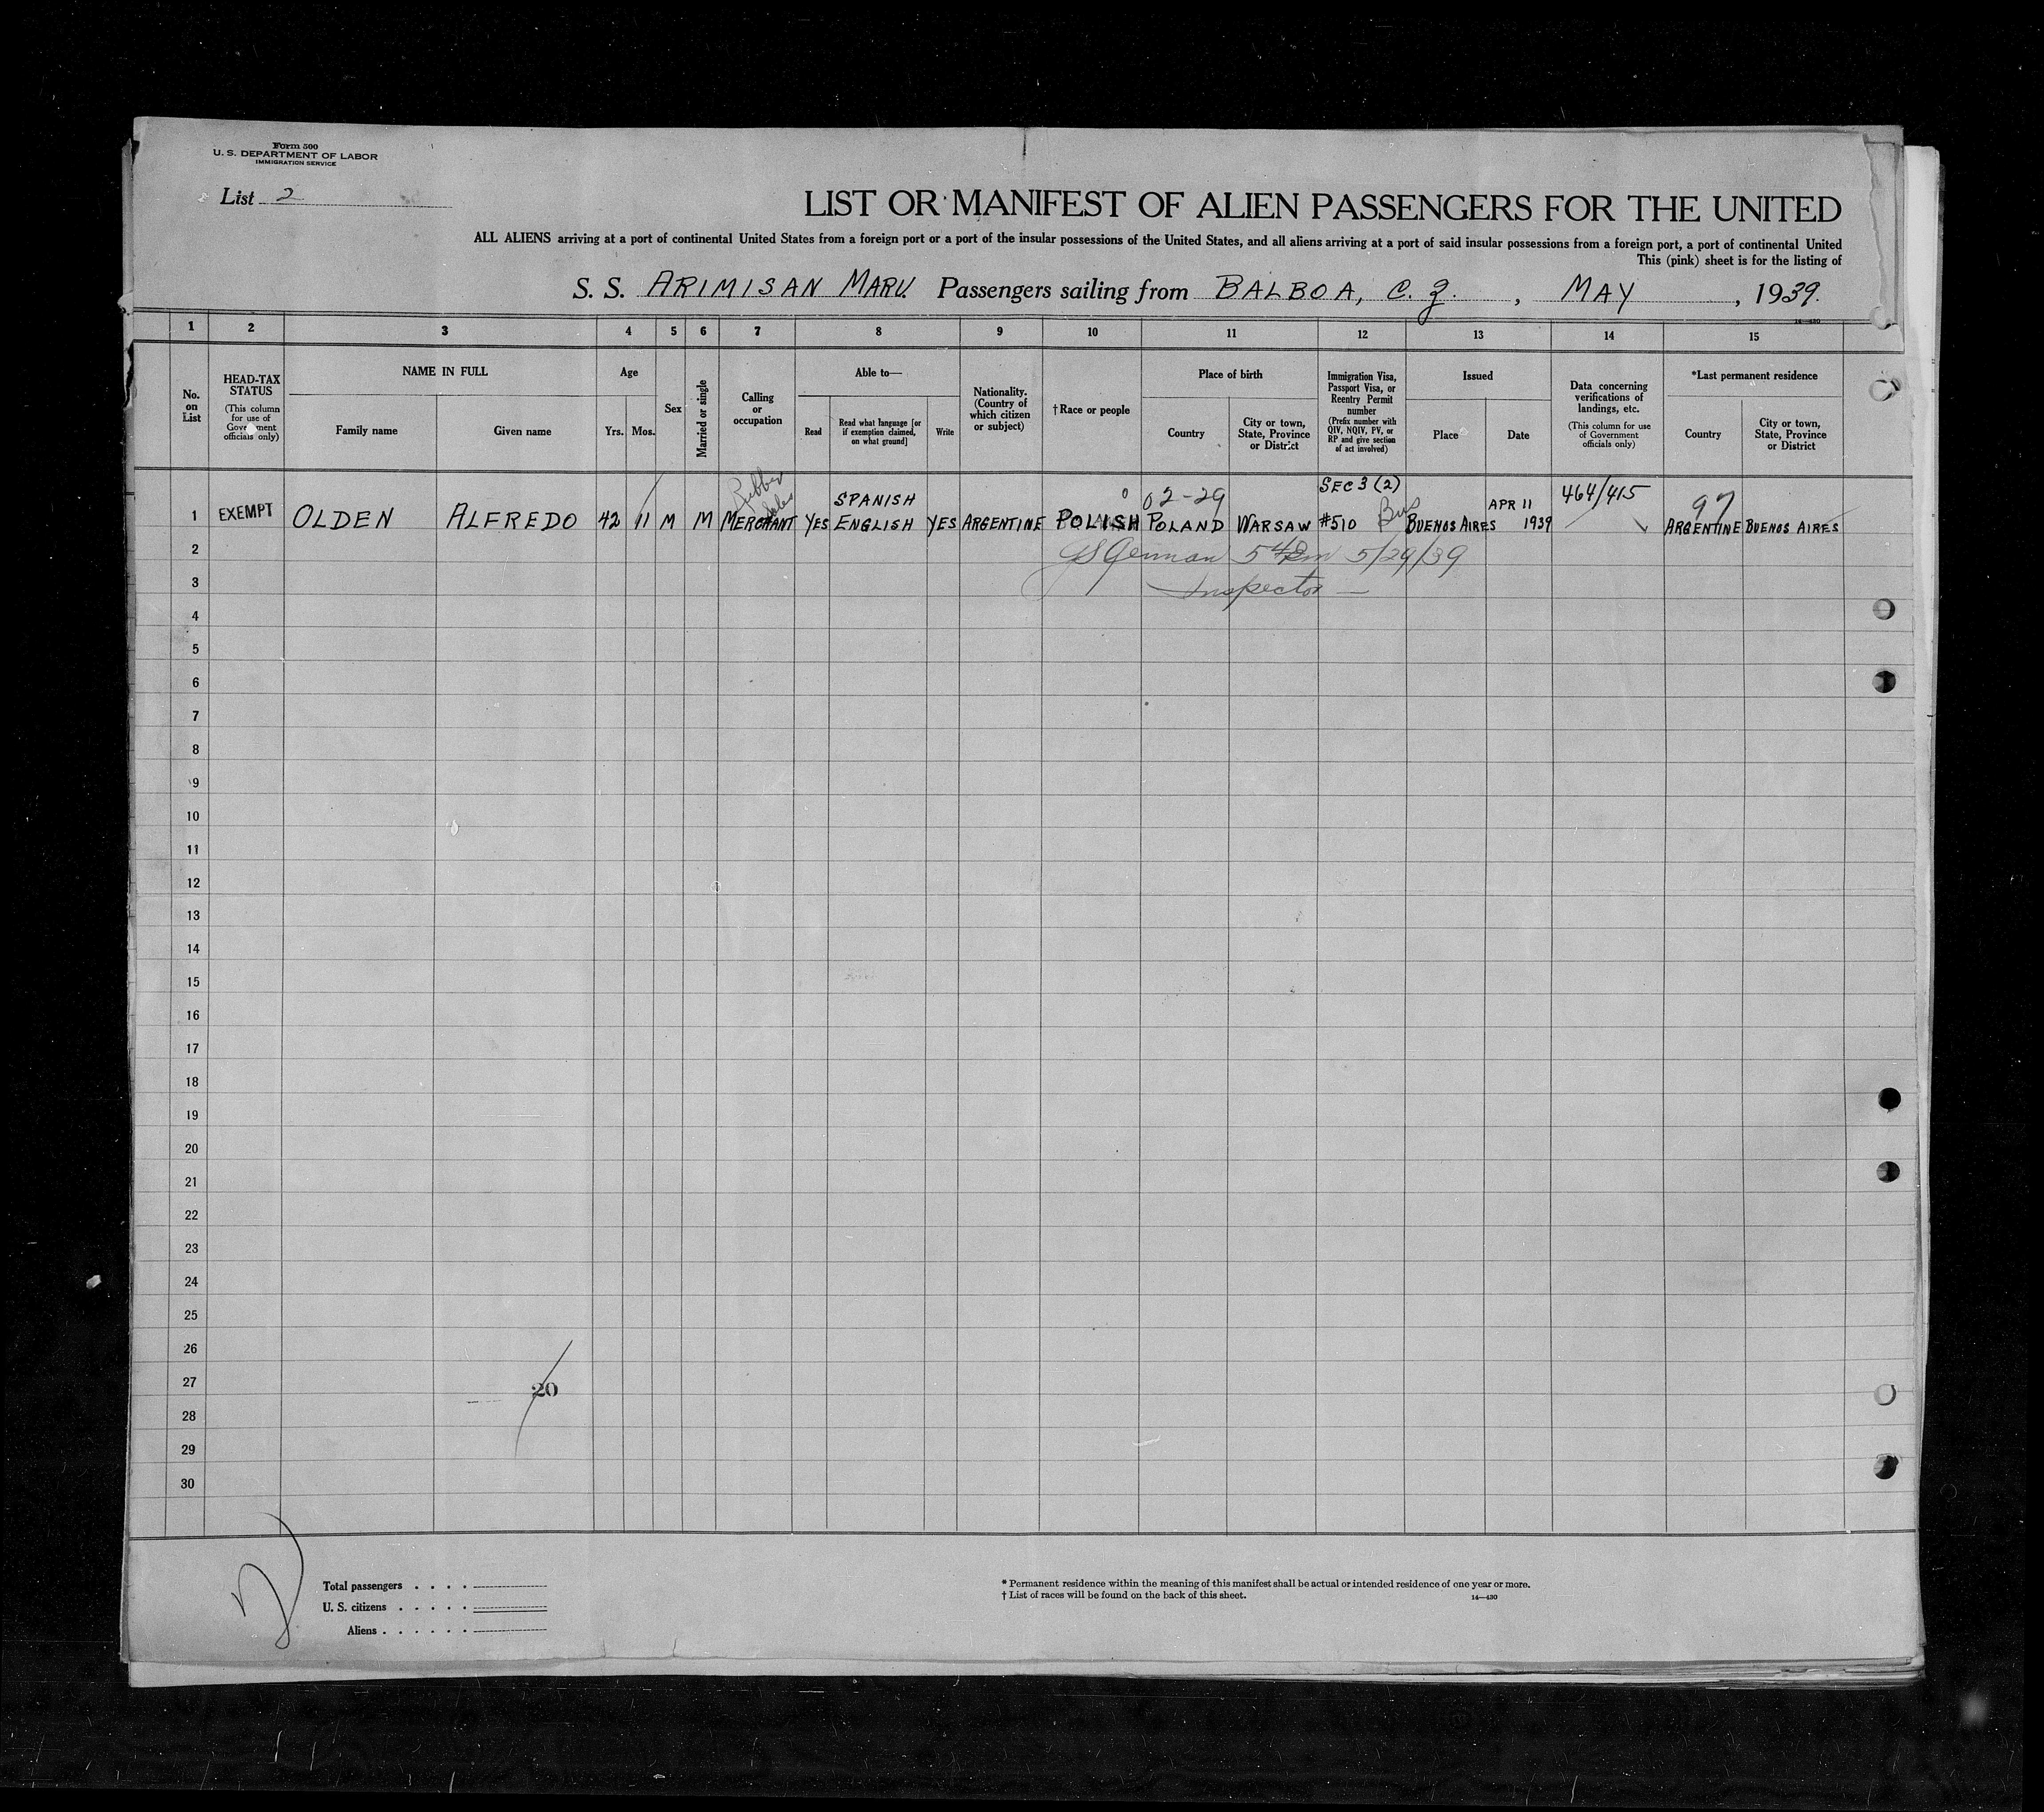 Form 500
U. S. DEPARTMENT OF LABOR
IMMIGRATION SERVICE
List 2
LIST OR MANIFEST OF ALIEN PASSENGERS FOR THE UNITED
ALL ALIENS arriving at a port of continental United States from a foreign port or a port of the insular possessions of the United States, and all aliens arriving at a port of said insular possessions from a foreign port, a port of continental United
This (pink) sheet is for the listing of
S. S. ARIMISAN MARU. Passengers sailing from BALBOA, C. Z. , MAY , 1939.
14—430
1 2 3 4 5 6 7 8 9 10 11 12 13 14 15
No. on List
HEAD-TAX STATUS
(This column for use of Government officials only)
NAME IN FULL
Family name
Given name
Age
Yrs.
Mos.
Sex
Married or single
Calling or occupation
Able to—
Read
Read what language [or if exemption claimed, on what ground]
Write
Nationality. (Country of which citizen or subject)
†Race or people
Place of birth
Country
City or town, State, Province or District
Immigration Visa, Passport Visa, or Reentry Permit number
(Prefix number with QIV, NQIV, PV, or RP and give section of act involved)
Issued
Place
Date
Data concerning verifications of landings, etc.
(This column for use of Government officials only)
*Last permanent residence
Country
City or town, State, Province or District
Rubber Sales
SPANISH
02-29
SEC 3 (2)
APR 11
464/415
97
1 EXEMPT OLDEN ALFREDO 42 11 M M MERCHANT YES ENGLISH YES ARGENTINE POLISH POLAND WARSAW #510 BUENOS AIRES 1939 ARGENTINE BUENOS AIRES
2 German 5/29/39
3 Inspector
4
5
6
7
8
9
10
11
12
13
14
15
16
17
18
19
20
21
22
23
24
25
26
27 20
28
29
30
Total passengers . . . .
U. S. citizens . . . . .
Aliens . . . . . .
* Permanent residence within the meaning of this manifest shall be actual or intended residence of one year or more.
† List of races will be found on the back of this sheet.
14—430